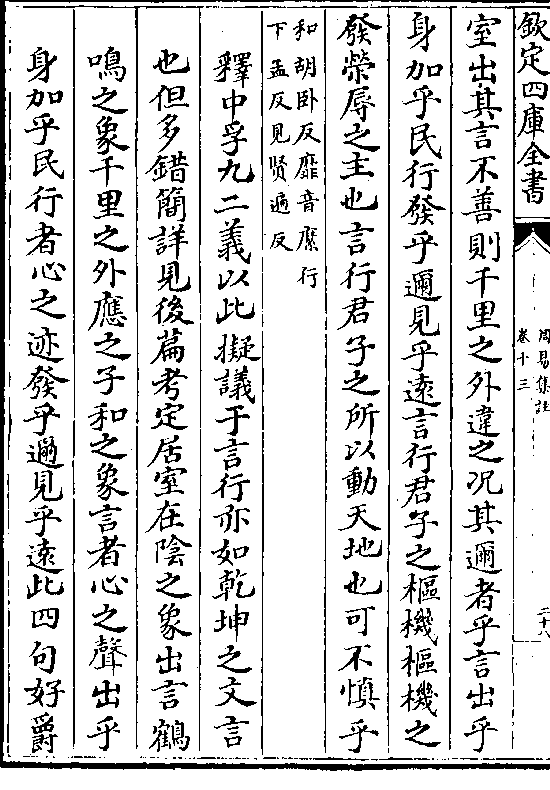 欽定四庫全書
周易集註
卷十三
二十八
室出其言不善則千里之外違之况其邇者乎言出乎
身加乎民行發乎邇見乎遠言行君子之樞機樞機之
發榮辱之主也言行君子之所以動天地也可不慎乎
和胡卧反靡音縻行
下孟反見賢遍反
釋中孚九二義以此擬議于言行亦如乾坤之文言
也但多錯簡詳見後篇考定居室在陰之象出言鶴
鳴之象千里之外應之子和之象言者心之聲出乎
身加乎民行者心之迹發乎邇見乎遠此四句好爵